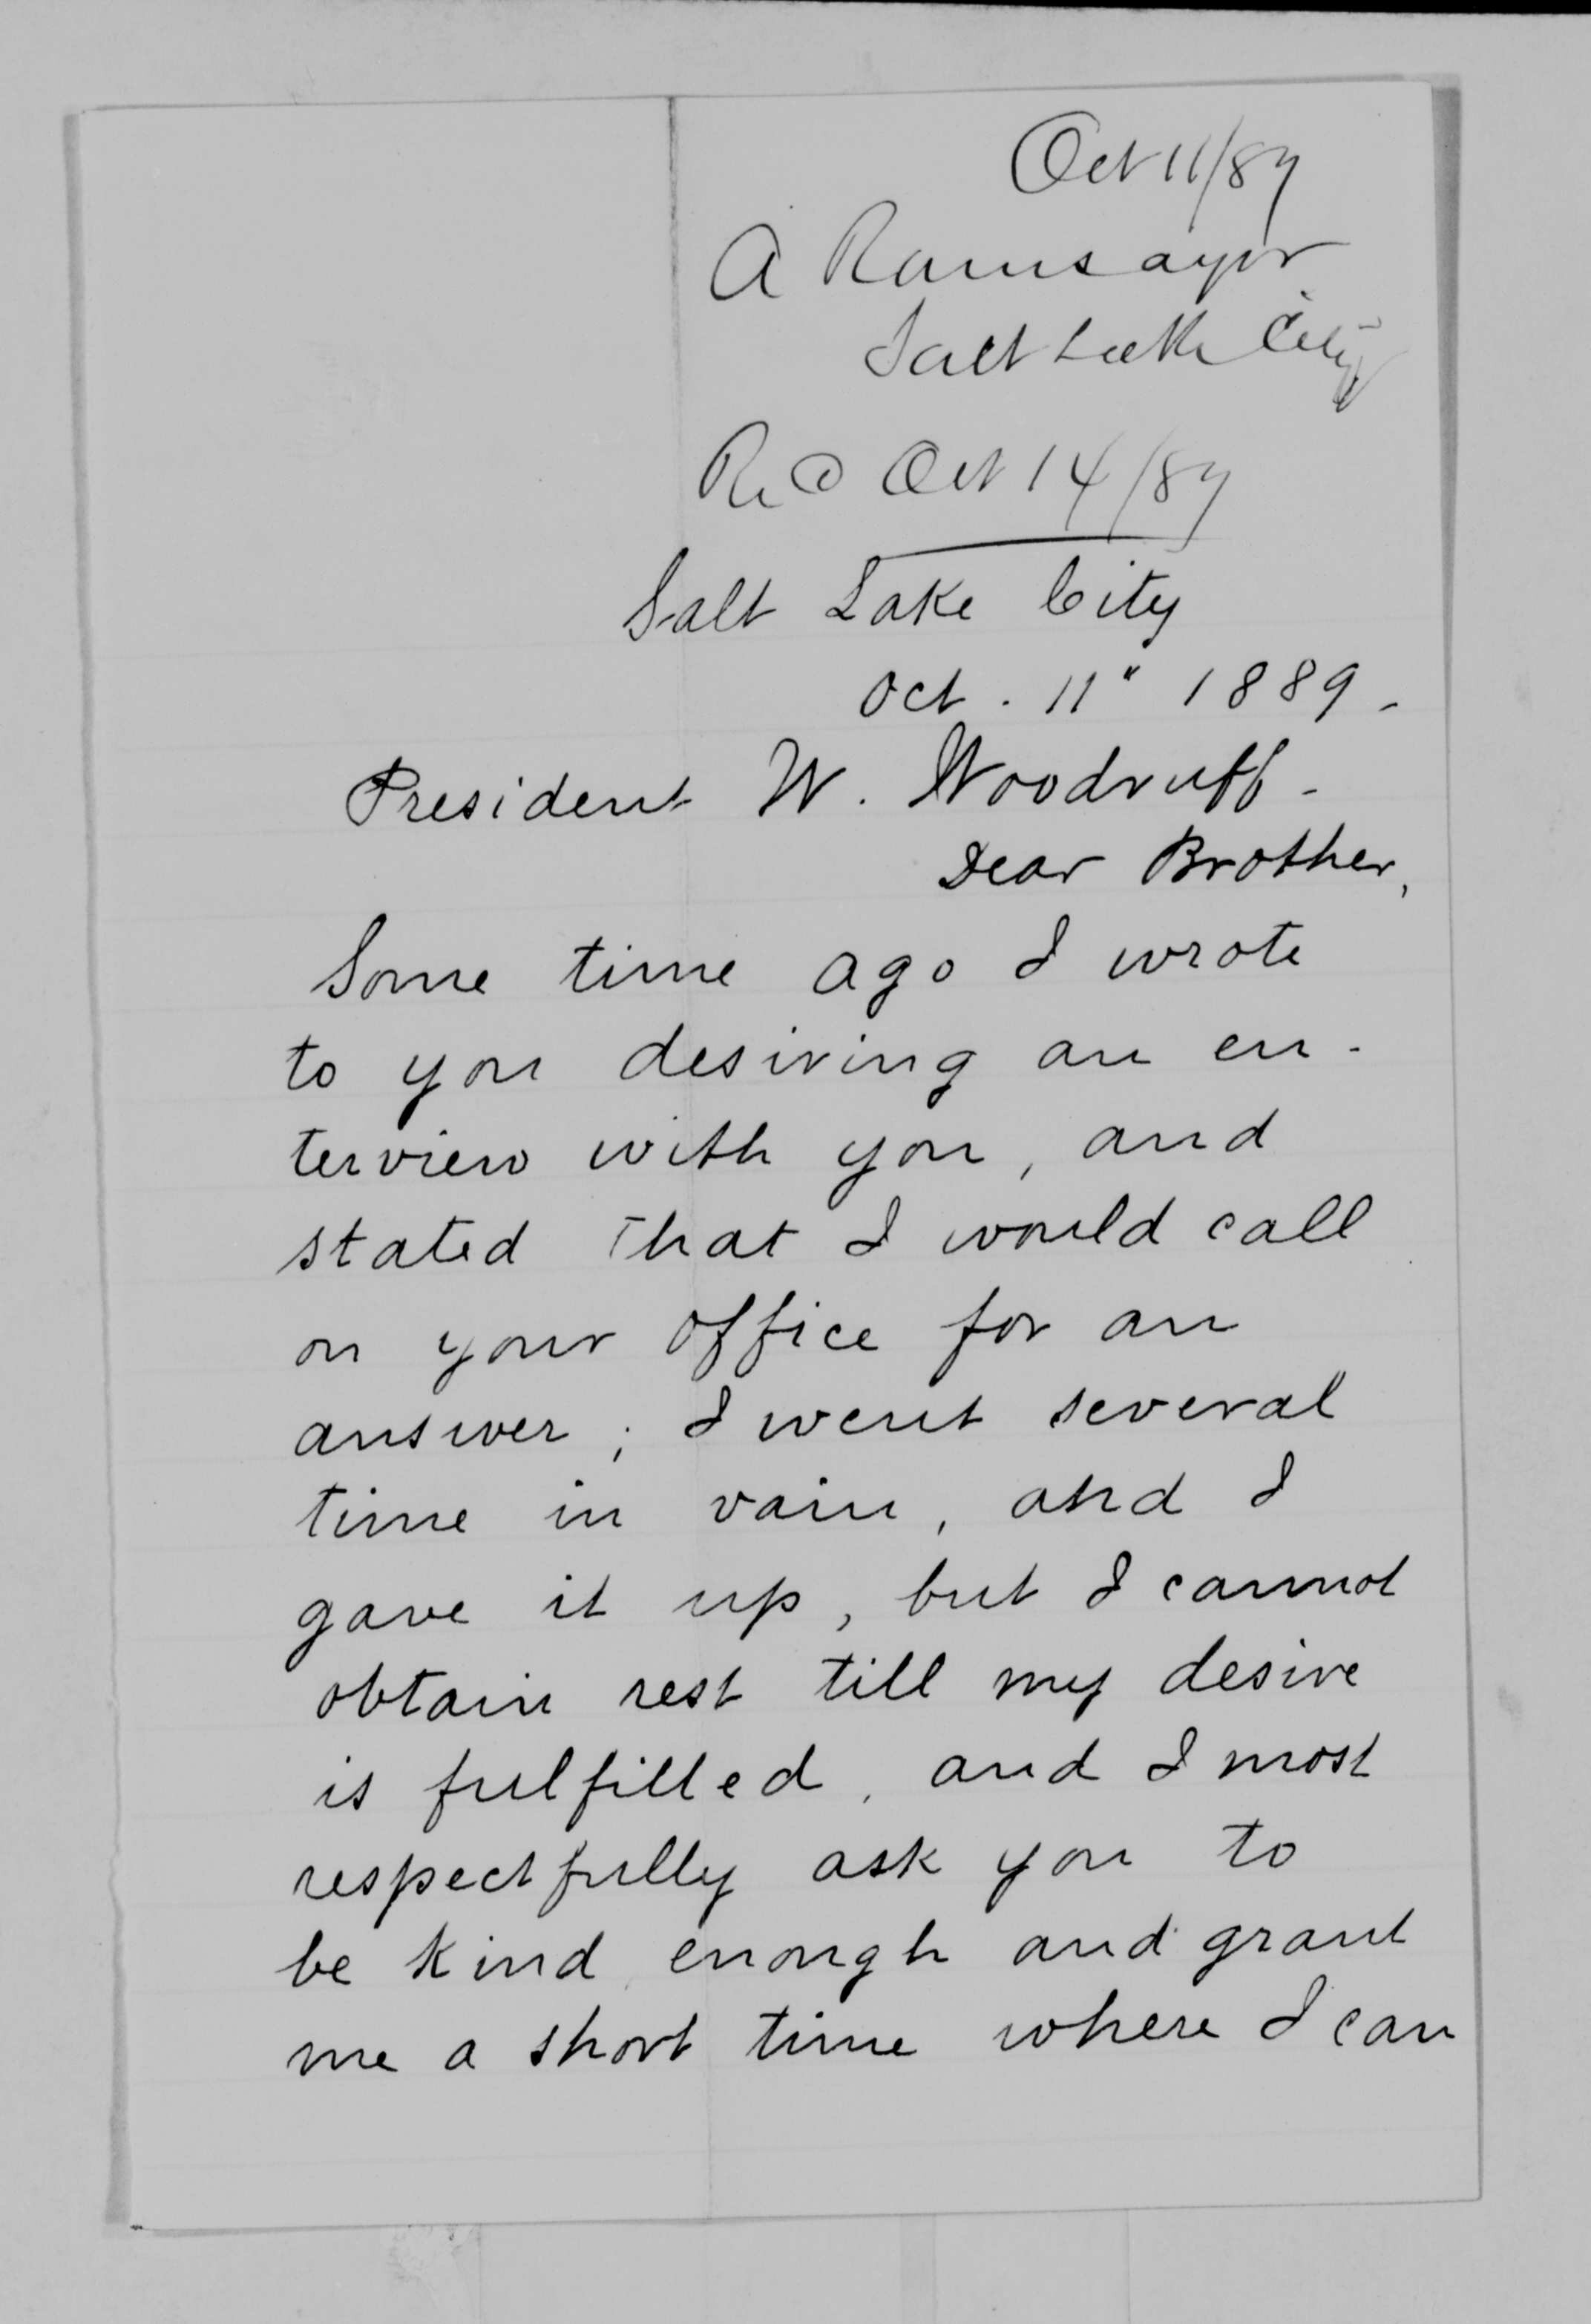 Oct 11/89
A Ramsayer
Salt Lake City
Recd Oct 14/89
Salt Lake City
Oct. 11" 1889.
President W. Woodruff.
Dear Brother,
Some time ago I wrote
to you desiring an en-
terview with you, and
stated that I would call
on your office for an
answer; I went several
time in vain, and I
gave it up, but I cannot
obtain rest till my desire
is fulfilled, and I most
respectfully ask you to
be kind enough and grant
me a short time where I can